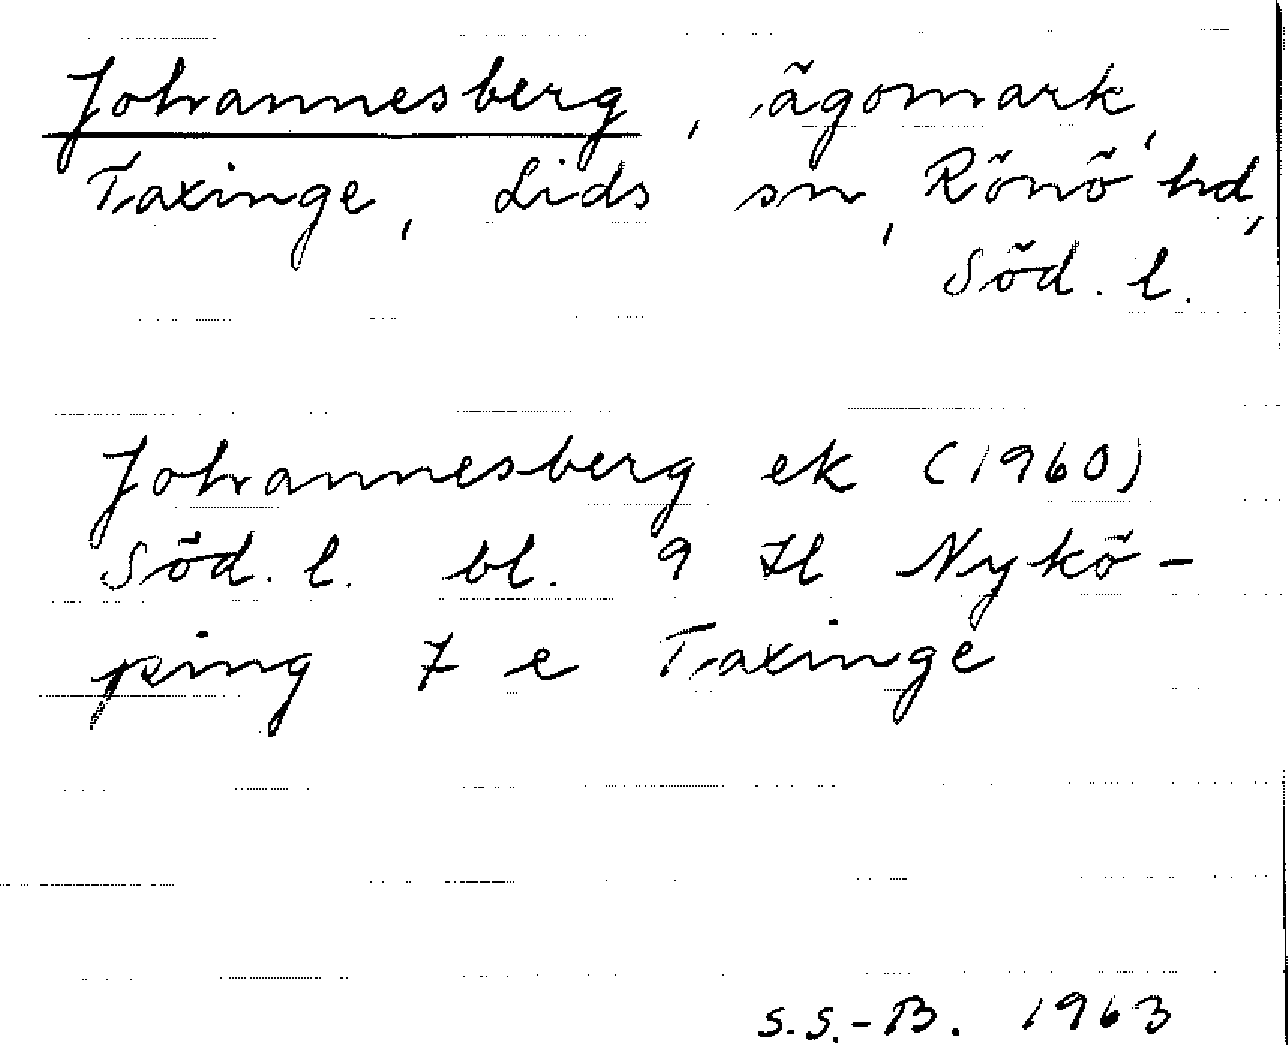 Johannesberg, ägomark,
Taxinge, Lids sn, Rönö hd,
Söd. l.
Johannesberg ek (1960)
Söd. l. bl. 9 H Nykö-
ping 7 e Taxinge
S.S.-B. 1963